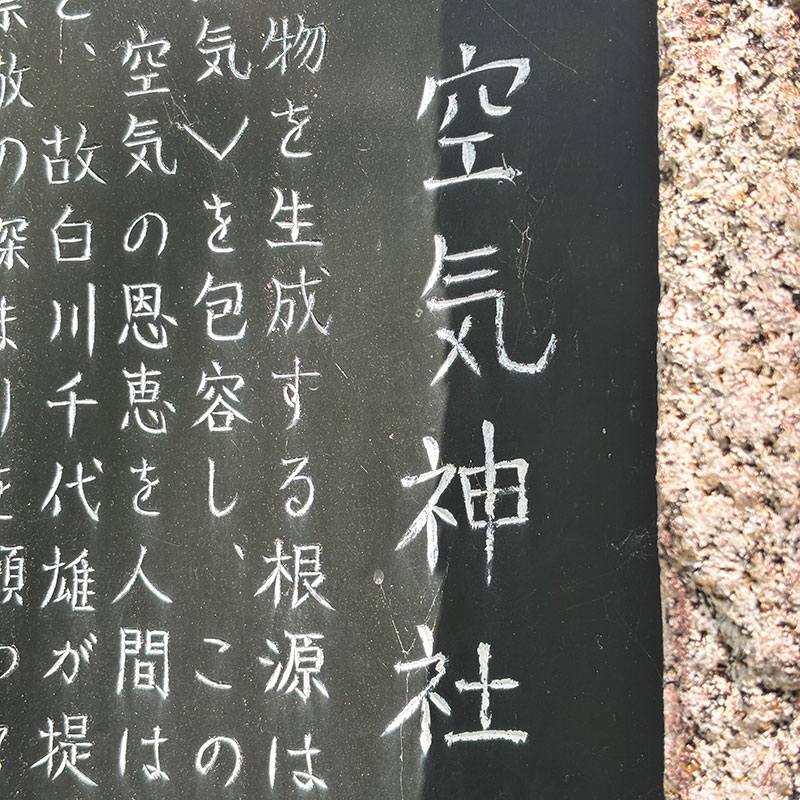 空気神社
物を生成する根源は
気＞を包容し、この
空気の恩恵を人間は
と、故白川千代雄が提
崇敬の深まりを願っ